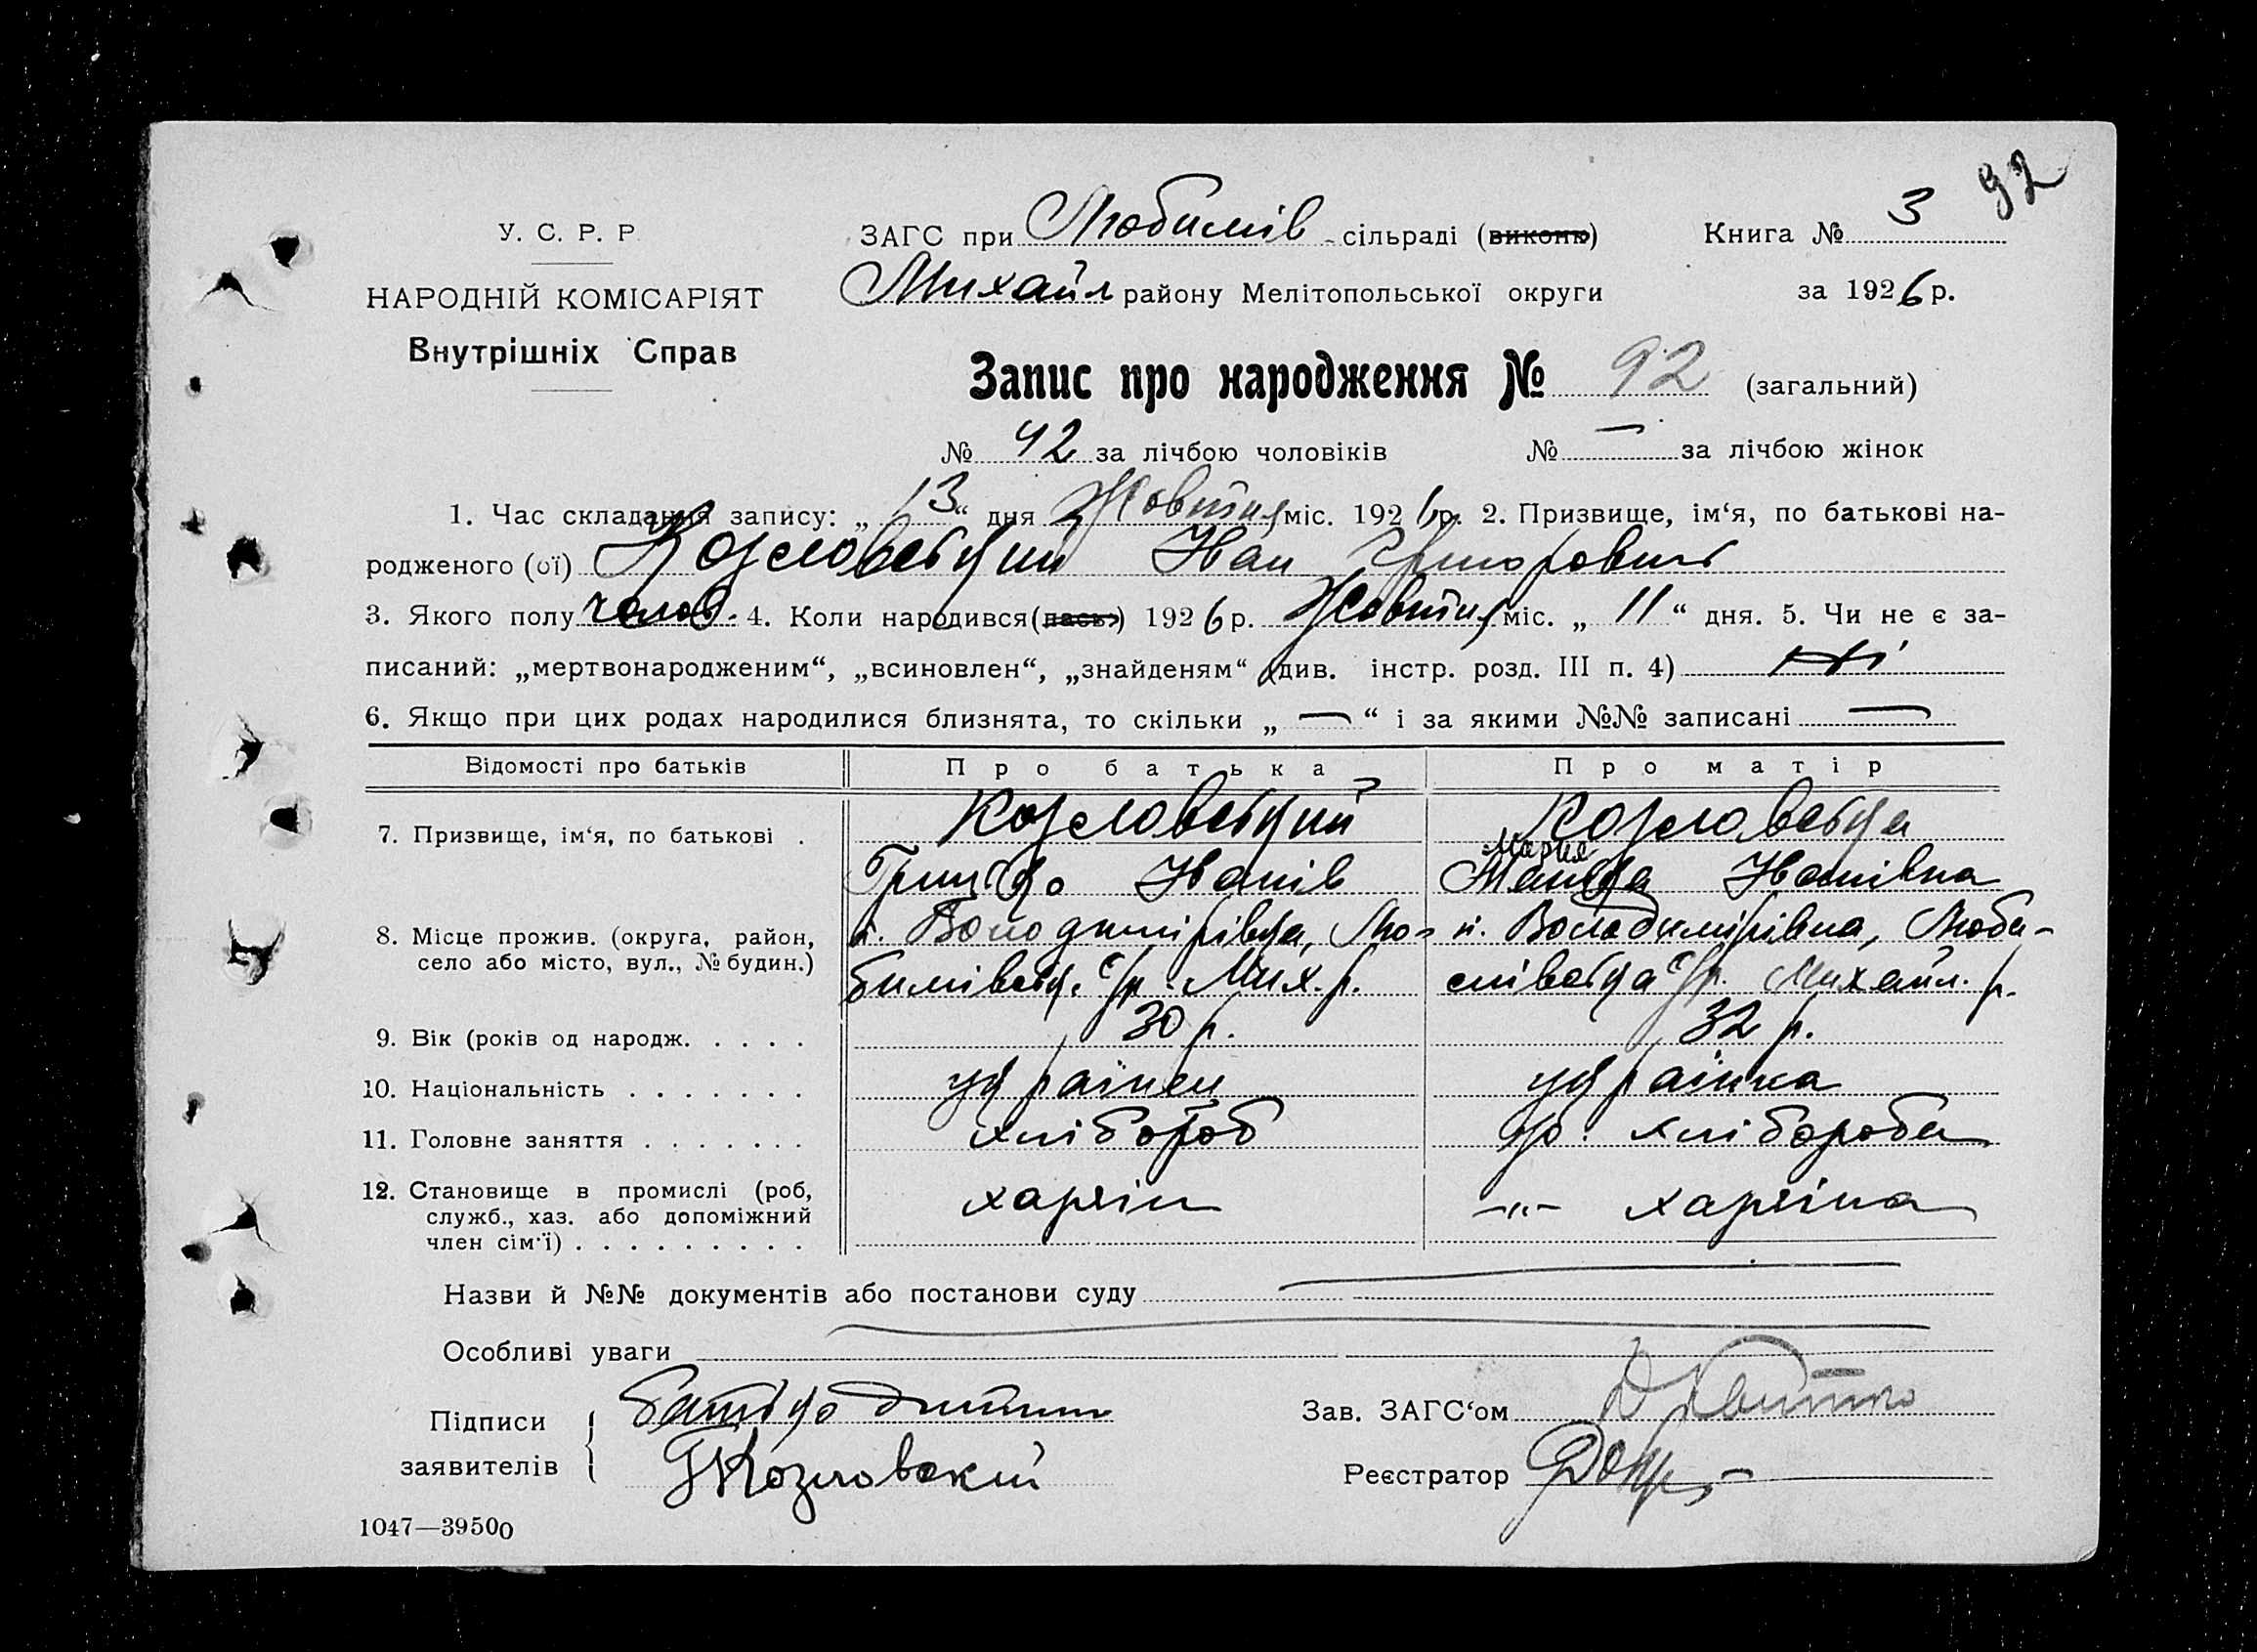 92
У. С. Р. Р
НАРОДНІЙ КОМІСАРІЯТ
Внутрішніх Справ
ЗАГС при Любимів - сільраді (виконю)
Михайл району Мелітопольської округи
Книга № 3
за 1926 р.
Запис про народження № 92 (загальний)
№ 42 за лічбою чоловіків № — за лічбою жінок
1. Час складання запису: „13“ дня Жовтня міс. 1926 р. 2. Призвище, ім‘я, по батькові на-
родженого (ої) Козловський Іван Григорович
3. Якого полу чолов. 4. Коли народився (лась) 1926 р. Жовтня міс. „11“ дня. 5. Чи не є за-
писаний: „мертвонародженим“, „всиновлен“, „знайденям“ (див. інстр. розд. III п. 4) Ні
6. Якщо при цих родах народилися близнята, то скільки „—“ і за якими №№ записані —
Відомості про батьків Про батька Про матір
7. Призвище, ім‘я, по батькові . Козловський Козловська
Мария
Грицько Іванів Іванівна
8. Місце прожив. (округа, район, п. Володимирівка, Лю- п. Володимирівка, Люби-
село або місто, вул., № будин.) бимівськ. с/р. Мих. р. мівська с/р. Михайл. р.
9. Вік (років од народж. . . . . 30 р. 32 р.
10. Національність . . . . . . . українець українка
11. Головне заняття . . . . . . . хлібороб хлібороба
12. Становище в промислі (роб, хазяїн -„- хазяїна
служб., хаз. або допоміжний
член сім‘ї) . . . . . . . . .
Назви й №№ документів або постанови суду —
Особливі уваги —
Підписи батько дитини
заявителів ГКозловский
Зав. ЗАГС‘ом
Реєстратор
1047—39500